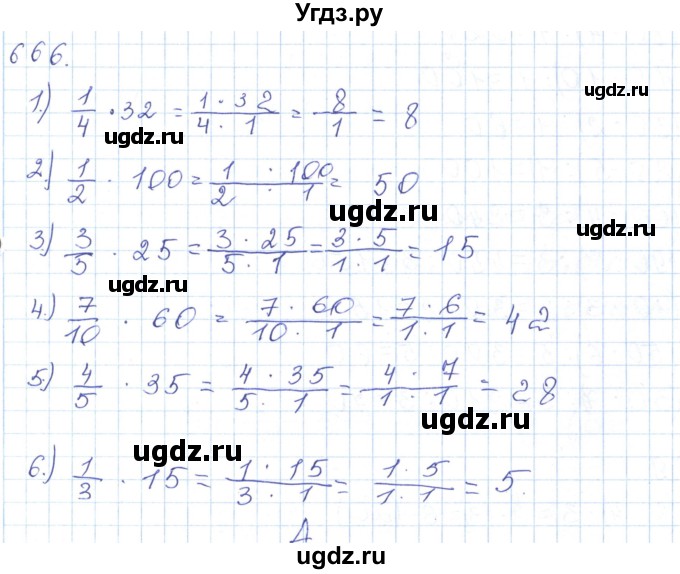 Угдз.ру
666.
1.) 1/4 · 32 = 1 · 32 / 4 · 1 = 8/1 = 8
ugdz.ru
ugdz.ru
2.) 1/2 · 100 = 1 · 100 / 2 1 = 50
ugdz.ru
ugdz.ru
3) 3/5 · 25 = 3 · 25 / 5 · 1 = 3 · 5 / 1 · 1 = 15
ugdz.ru
4.) 7/10 · 60 = 7 · 60 / 10 · 1 = 7 · 6 / 1 · 1 = 42
5.) 4/5 · 35 = 4 · 35 / 5 · 1 = 4 · 7 / 1 · 1 = 28
ugdz.ru
ugdz.ru
6.) 1/3 · 15 = 1 · 15 / 3 · 1 = 1 · 5 / 1 · 1 = 5.
Д
ugdz.ru